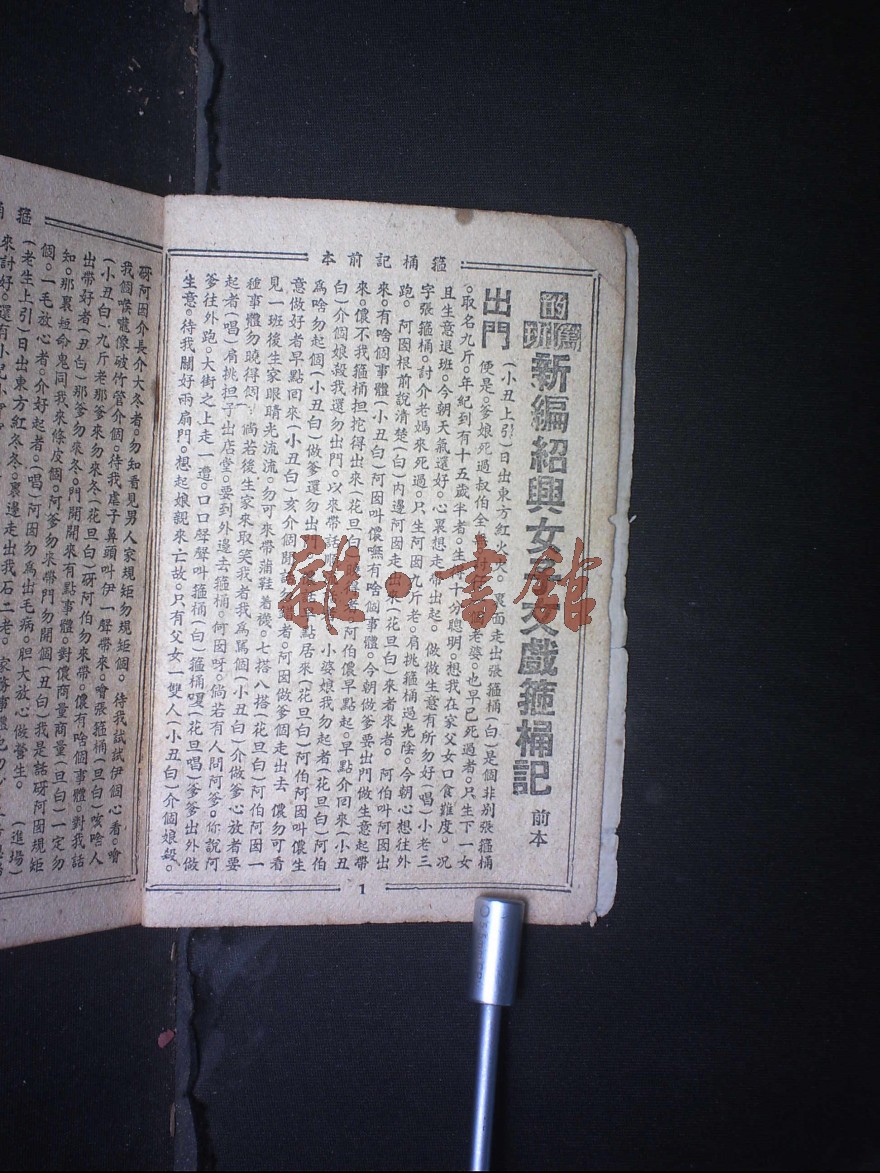 箍桶記前本
的篤班
新編紹興女子文戲箍桶記 前本
出門
(小丑上引)日出東方紅 裏面走出張箍桶(白)是個非別張箍桶
便是。爹娘死過叔伯全 老婆。也早已死過者。只生下一女
。取名九斤。年紀到有十五歲半者。生 十分聰明。想我在家父女口食難度。況
且生意退班。今朝天氣還好。心裏想走帶出起。做做生意有所勿好(唱)小老三
字張箍桶。討介老媽來死過。只生阿囡九斤老。肩挑箍桶過光陰。今朝心想往外
跑。阿囡根前說清楚(白)内邊阿囡走出來(花旦白)來者來者。阿伯叫阿囡出
來。有啥個事體(小丑白)阿囡叫儂嘸有啥個事體。今朝做爹要出門做生意起帶
來。儂不我箍桶担挖得出來(花旦白) 阿伯儂早點起。早點介回來(小丑
白)介個娘殺我還勿出門。以來帶註 小婆娘我勿起者(花旦白)阿伯
為啥勿起個(小丑白)做爹還勿出門 點居來(花旦白)阿伯阿囡叫儂生
意做好者早點回來(小丑白)亥介個閒話 者。阿囡做爹個走出去 儂勿可看
見一班後生家眼睛光流流。勿可來帶蒲鞋着襪。七搭八搭(花旦白)阿伯阿囡一
種事體勿曉得個 倘若後生家來取笑我者我為罵個(小丑白)介做爹心放者要
起者(唱)肩挑担子出店堂。要到外邊去箍桶。何囡呀。倘若有人問阿爹。你說阿
爹往外跑。大街之上走一遭。口口聲聲叫箍桶(白)箍桶嘎(花旦唱)爹爹出外做
生意。待我關好雨扇門。想起娘親來亡故。只有父女一雙人(小丑白)介個娘殺。
1
砑阿因介長介大冬者。勿知看見男人家規矩勿規矩個。待我試試伊個心者。嚕
我個喉嚨像破竹管介個。待我虐子鼻頭叫伊一聲帶來。嚕張箍桶(旦白)咳啥人
(小丑白)九斤老那爹來勿來冬(花旦白)砑阿伯勿來帶。儂有啥個事體。對我話
出帶好者(丑白)那爹勿來冬。門開開來有點事體。對儂商量商量(旦白)一定勿
知。那裏短命鬼同我來條皮個。阿爹勿來帶門勿開個(丑白)我是話砑阿囡規矩
個。一毛放心者。介好起者。(唱)阿囡勿為出毛病。胆大放心做營生。 (進場)
(老生上引)日出東方紅冬冬。裏邊走出我石二老。
來討好。還有小兒
雜·書館